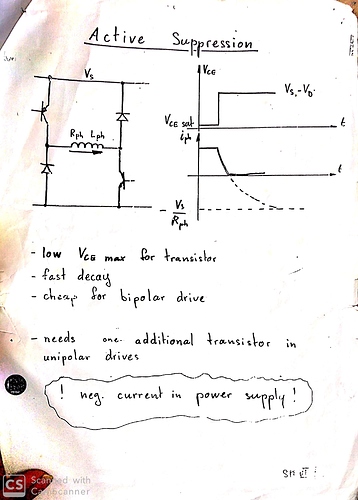 Active Suppression
Vs
VCE
Vs - VD
VCE sat
t
iph
Rph Lph
t
- Vs
Rph
- low VCE max for transistor
- fast decay
- cheap for bipolar drive
- needs one additional transistor in
unipolar drives
! neg. current in power supply !
CS Scanned with
CamScanner